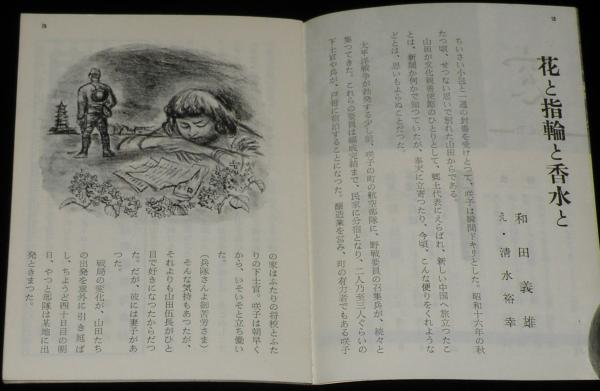 花と指輪と香水と
和田義雄
え・清水裕幸
ちいさい小包と一通の封書を受けとって、咲子は瞬間ドキリとした。昭和十六年の秋
たつ頃、せつない思いで別れた山田からである。
山田が文化親善使節のひとりとして、郷土代表にえらばれ、新しい中国へ旅立ったこ
とは、新聞か何かで知っていたが、奉天に立寄ったり、今頃、こんな便りをくれような
どとは、思いもよらぬことだった。
太平洋戦争が勃発する少し前、咲子の町の航空部隊に、野戦要員の召集兵が、続々と
集ってきた。これらの要員は編成完結まで、民家に分宿となり、二人乃至三人ぐらいの
下士官や兵が、戸毎に宿泊することになった。醸造業を営み、町の有力者でもある咲子
の家はふたりの将校とふた
りの下士官。咲子は朝早く
から、いそいそと立ち働い
た。
(兵隊さんよ御苦労さま)
そんな気持もあったが、
それよりも山田伍長がひと
目で好きになったからだっ
た。だが、彼には妻子があ
った。
戦局の変化が、山田たち
の出発を意外に引き延ば
し、ちょうど四十日目の明
日、やっと部隊は某地に出
発ときまった。